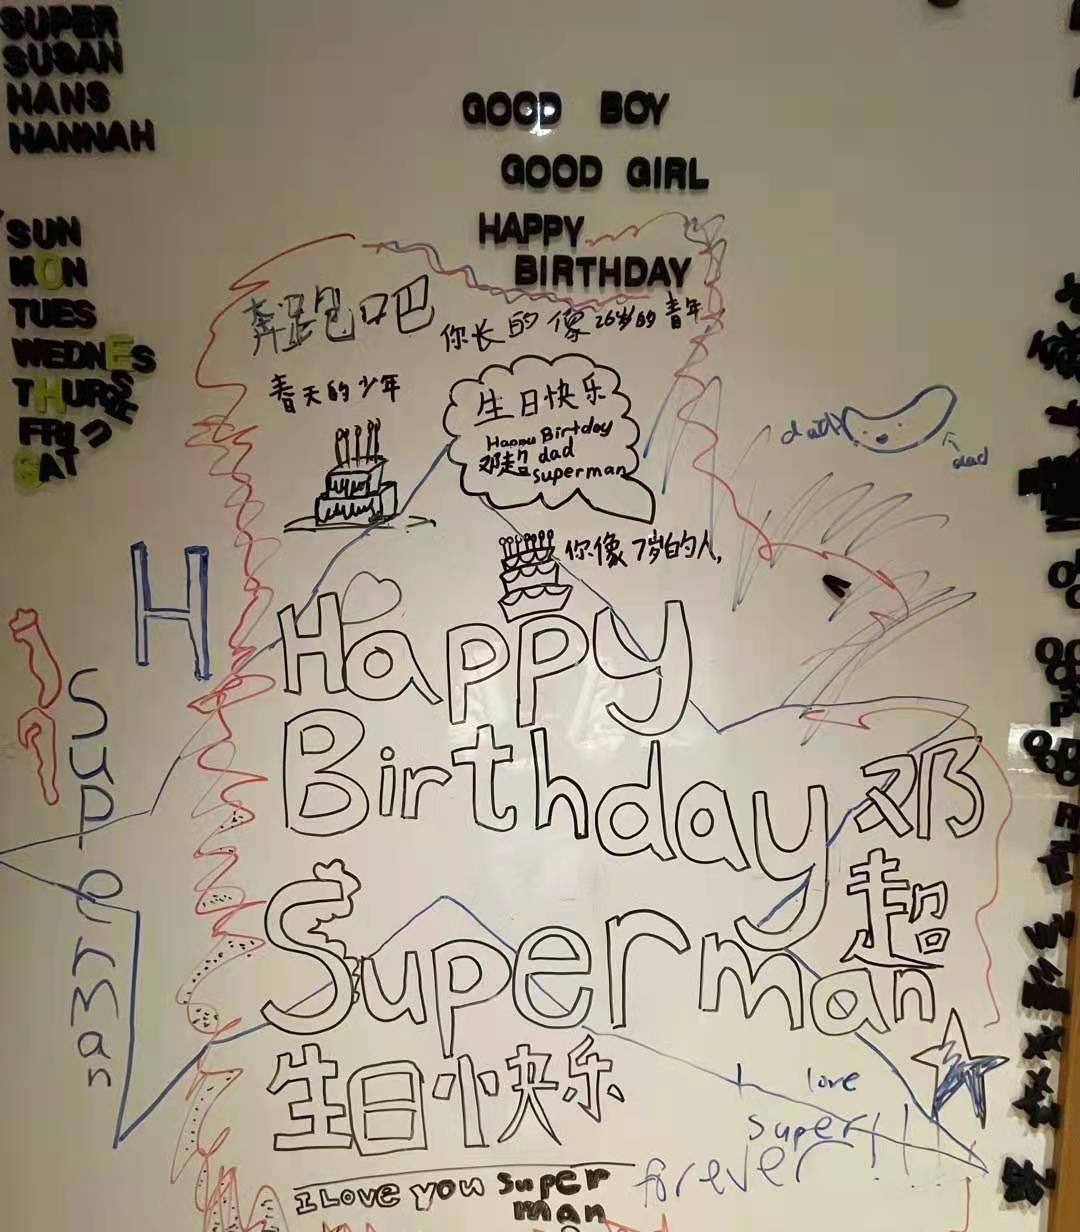 SUPER
SUSAN
HANS
HANNAH
GOOD BOY
GOOD GIRL
HAPPY
BIRTHDAY
SUN
MON
TUES
WEDNES
THURS
FRI
SAT
奔跑吧
你长的像26岁的青年
春天的少年
生日快乐
Happy Birtday
邓超 dad
superman
你像7岁的人,
dad
H
Superman
Happy
Birthday 邓
超
Superman
生日快乐
I love
super!!!!
forever
I Love you super
man